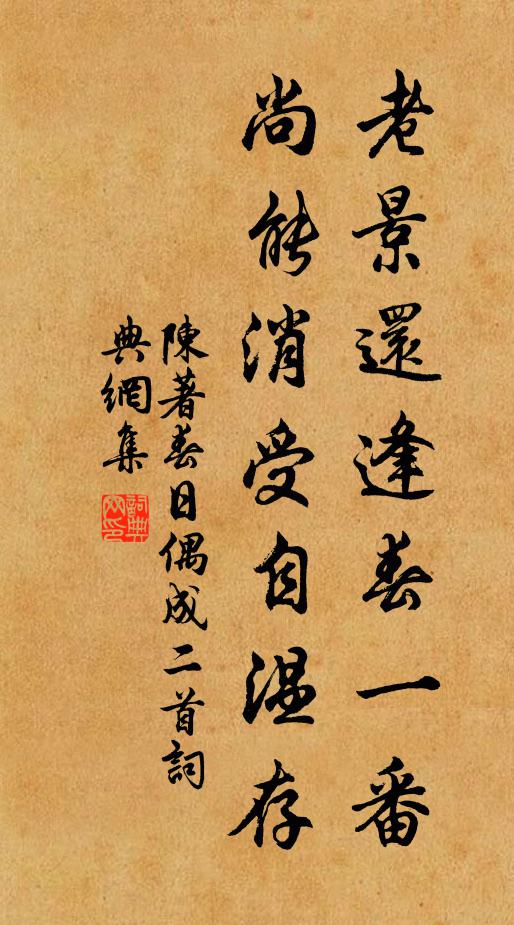 老景還逢春一番
尚能消受自温存
陳著春日偶成二首詞
典網集
詞典
網印